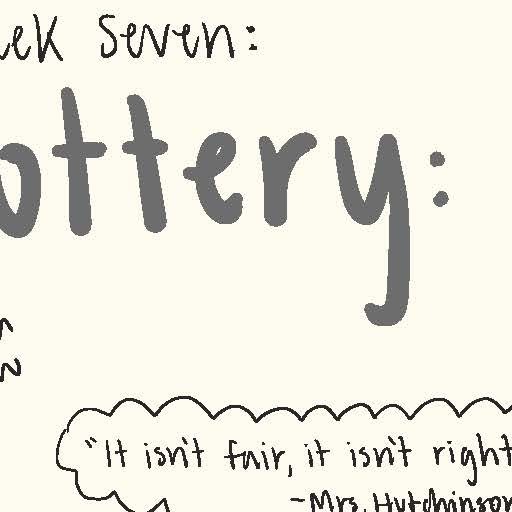 eek Seven:
ottery:
"It isn't fair, it isn't right
-Mrs. Hutchinson